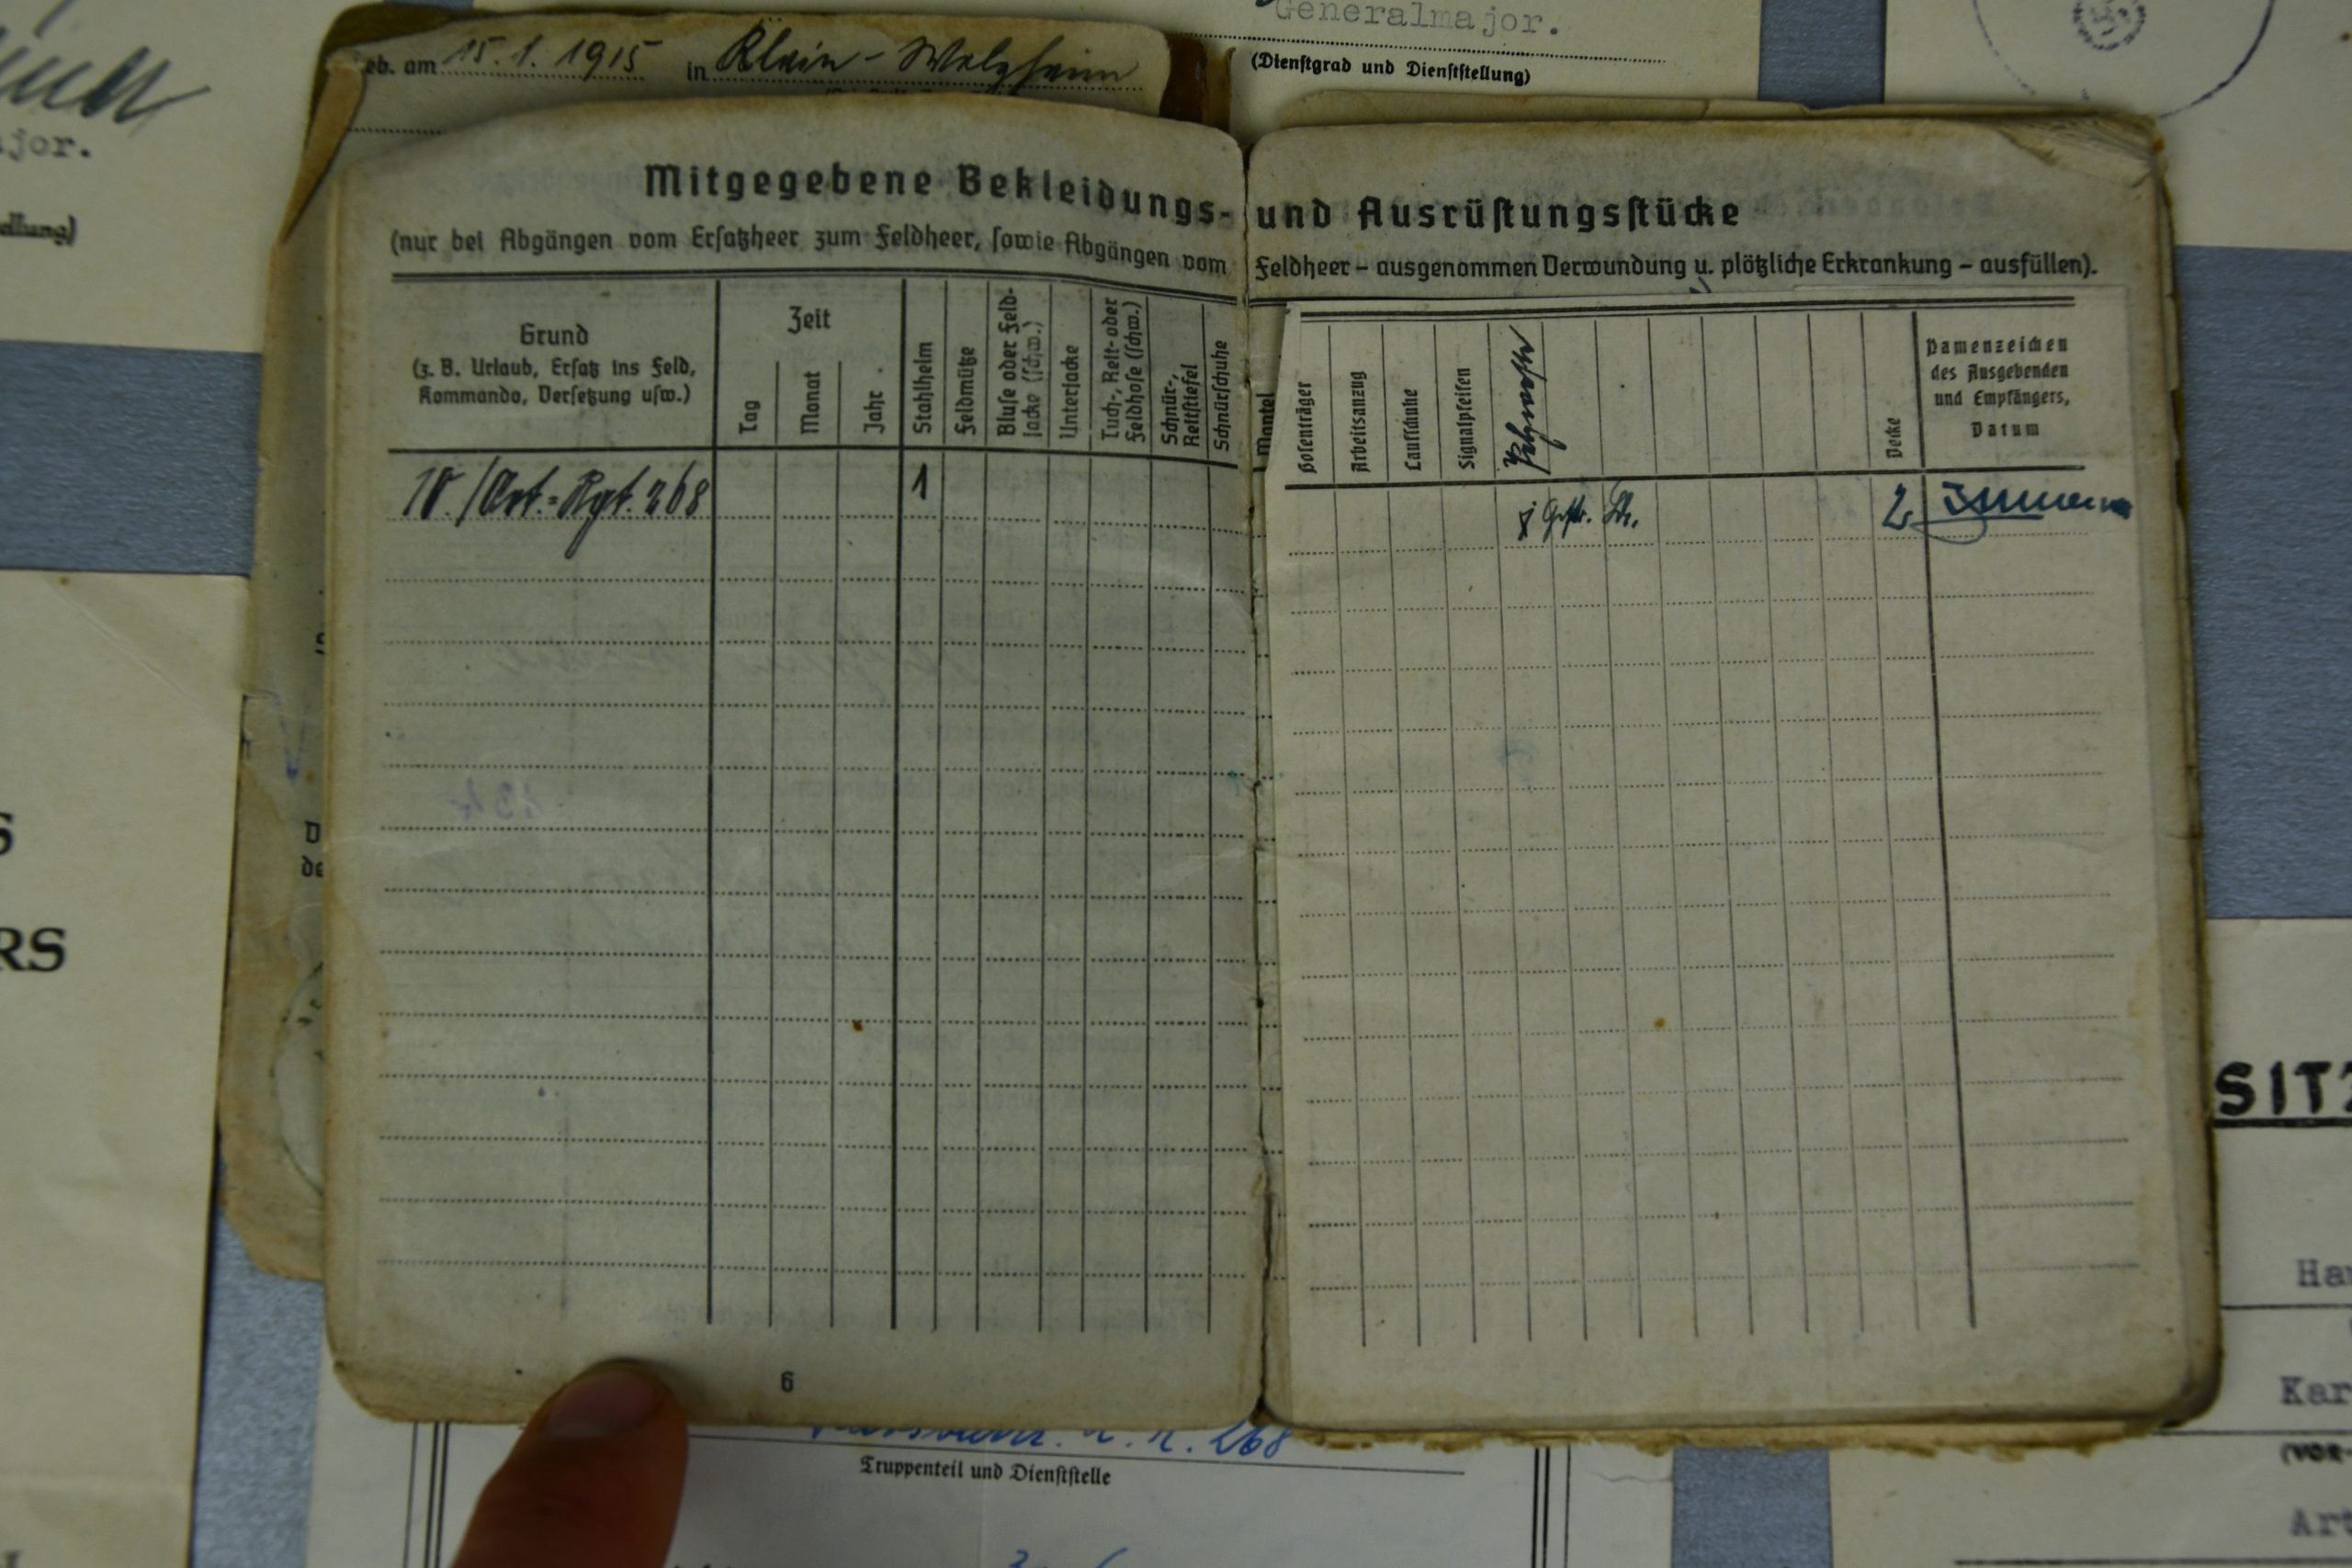 Generalmajor.
(Dienstgrad und Dienststellung)
eb. am 15.1.1915 in Klein-Welzheim
ajor.
ellung)
Mitgegebene Bekleidungs- und Ausrüstungsstücke
(nur bei Abgängen vom Ersatzheer zum Feldheer, sowie Abgängen vom Feldheer – ausgenommen Verwundung u. plötzliche Erkrankung – ausfüllen).
Grund
(z. B. Urlaub, Ersatz ins Feld,
Kommando, Versetzung usw.)
Zeit
Tag
Monat
Jahr
Stahlhelm
Feldmütze
Bluse oder Feld-
jacke (schw.)
Unterjacke
Tuch-, Reit- oder
Feldhose (schw.)
Schnür-,
Reitstiefel
Schnürschuhe
Mantel
Hosenträger
Arbeitsanzug
Laufschuhe
Signalpfeifen
Decke
Namenzeichen
des Ausgebenden
und Empfängers,
Datum
10./Art.-Rgt. 268
1
2
S
RS
de
6
SITZ
Ha
Kar
(vor-
Art
268
Truppenteil und Dienststelle